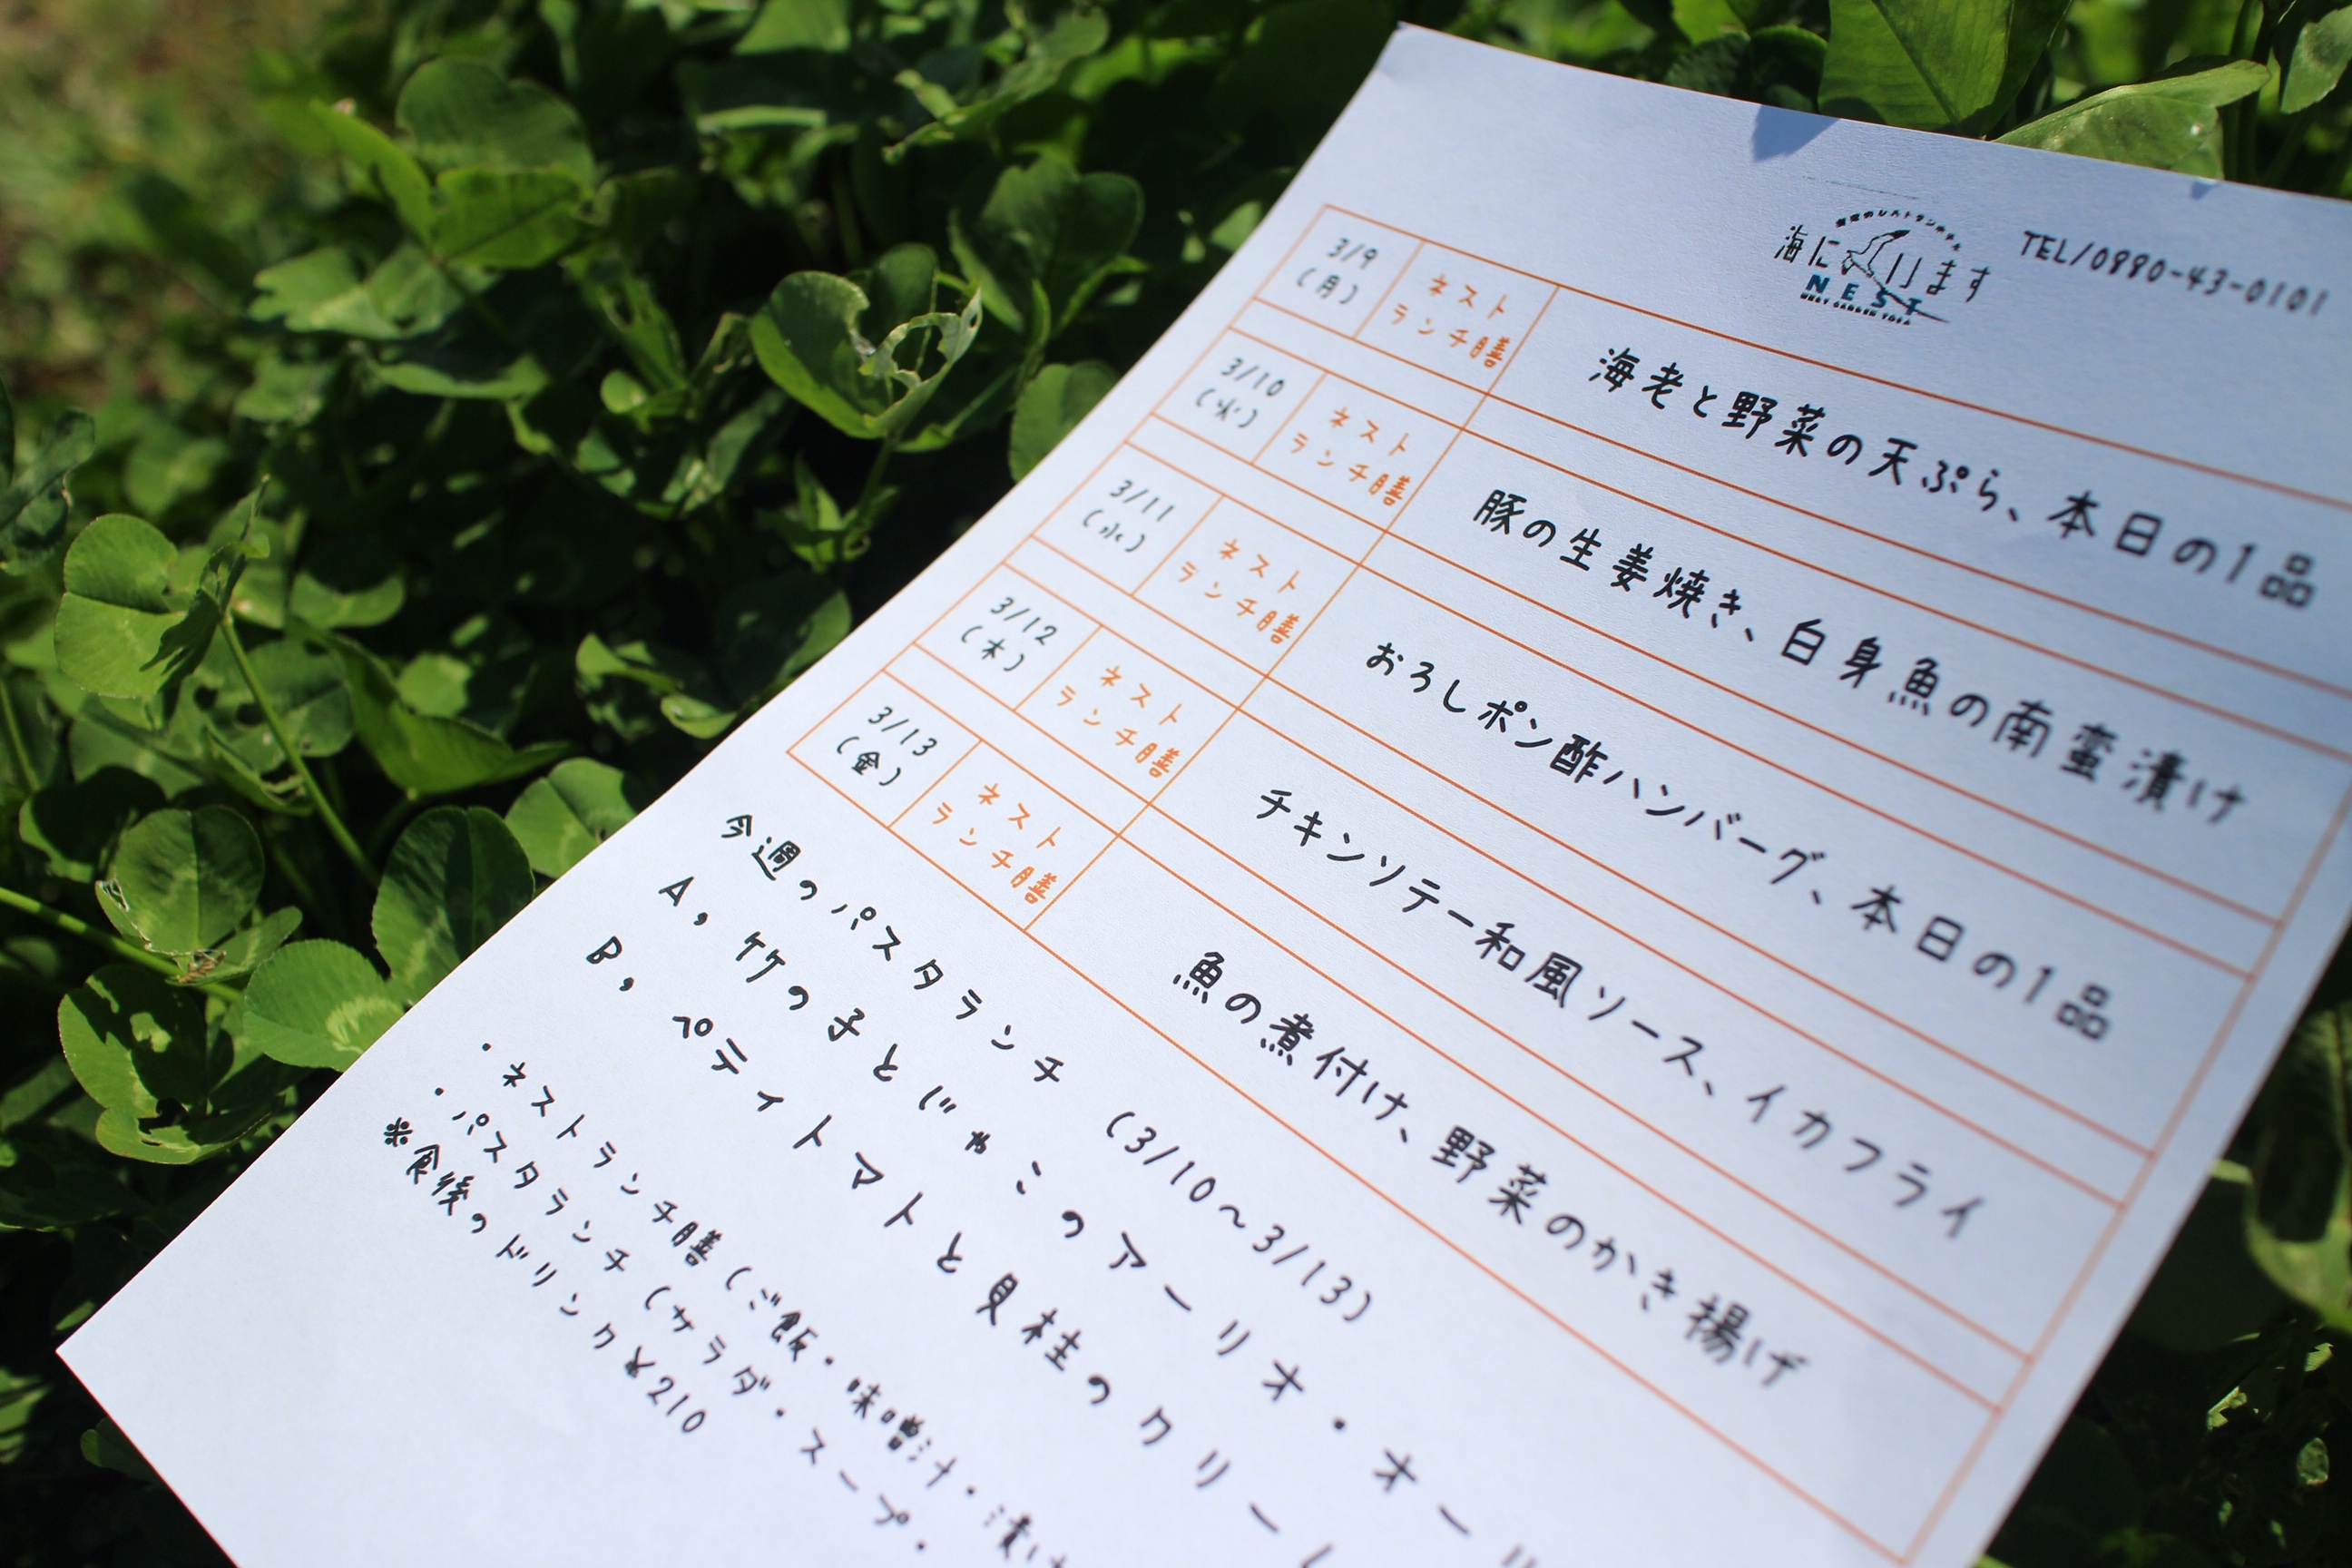 海に います
NEST
TEL/0880-43-0101
3/9
(月)
ネスト
ランチ膳
海老と野菜の天ぷら、本日の1品
3/10
(火)
ネスト
ランチ膳
豚の生姜焼き、白身魚の南蛮漬け
3/11
(水)
ネスト
ランチ膳
おろしポン酢ハンバーグ、本日の1品
3/12
(木)
ネスト
ランチ膳
チキンソテー和風ソース、イカフライ
3/13
(金)
ネスト
ランチ膳
魚の煮付け、野菜のかき揚げ
今週のパスタランチ (3/10~3/13)
A, 竹の子とじゃこのアーリオ・オー
B, ペティトマトと貝柱のクリー
・ネストランチ膳(ご飯・味噌汁・漬け
・パスタランチ(サラダ・スープ・
※食後のドリンク¥210